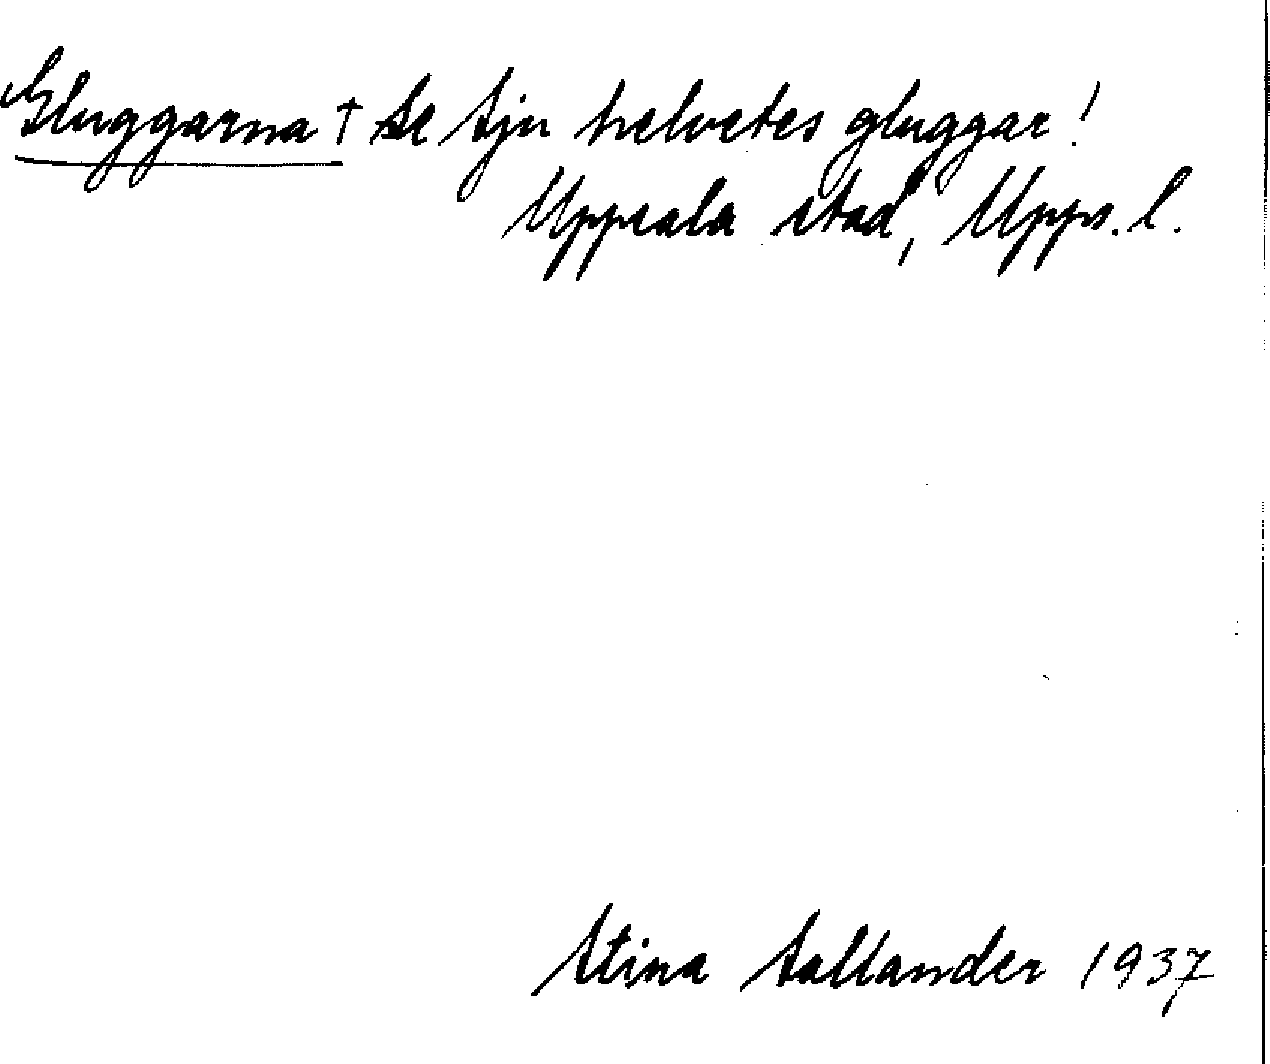 Gluggarna † Se Sju helvetes gluggar!
Uppsala stad, Upps. l.
Stina Sallander 1937